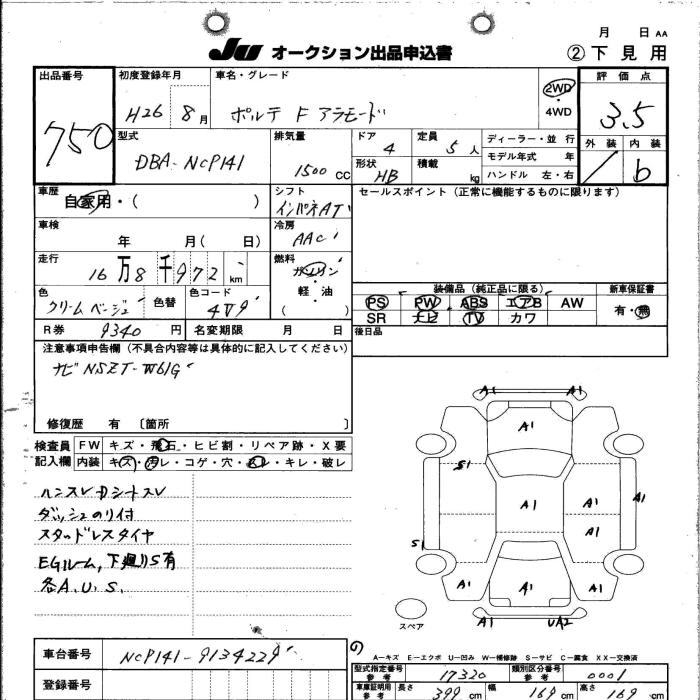 月 日 AA
JU オークション出品申込書 ②下見用
出品番号 750
初度登録年月 H26 8月
車名・グレード ポルテ F アラモード
2WD
・
4WD
評価点 3.5
外装 内装
b
型式 DBA-NCP141
排気量 1500 CC
ドア 4
形状 HB
定員 5人
積載 kg
ディーラー・並行
モデル年式 年
ハンドル 左・右
車歴 自家用・( )
シフト インパネAT
セールスポイント (正常に機能するものに限ります)
車検 年 月( 日)
冷房 AAC
走行 16万8千972 km
燃料 ガソリン
・
軽・油
( )
色 クリームベージュ
色替
色コード 4V9
R券 9340円
名変期限 月 日
装備品 (純正品に限る)
新車保証書
PS PW ABS エアB AW
有・無
SR ナビ TV カワ
後日品
注意事項申告欄 (不具合内容等は具体的に記入してください)
ナビ NSZT-W61G
修復歴 有 〔箇所 〕
検査員 FW キズ・飛石・ヒビ割・リペア跡・X要
記入欄 内装 キズ・汚レ・コゲ・穴・スレ・キレ・破レ
ハンスレ Dシートスレ
ダッシュのり付
スタッドレスタイヤ
EGルーム,下廻りS有
各A.U.S.
A1 A1
A1
S1
A1 A1 A1
A1
S1
A1 A1 A1
スペア
A1 UA2
A-キズ E-エクボ U-凹み W-補修跡 S-サビ C-腐食 XX-交換済
車台番号 NCP141-9134229
の
型式指定番号 参考 17320
類別区分番号 参考 0001
登録番号
車庫証明用 参考
長さ 399 cm
幅 169 cm
高さ 169 cm